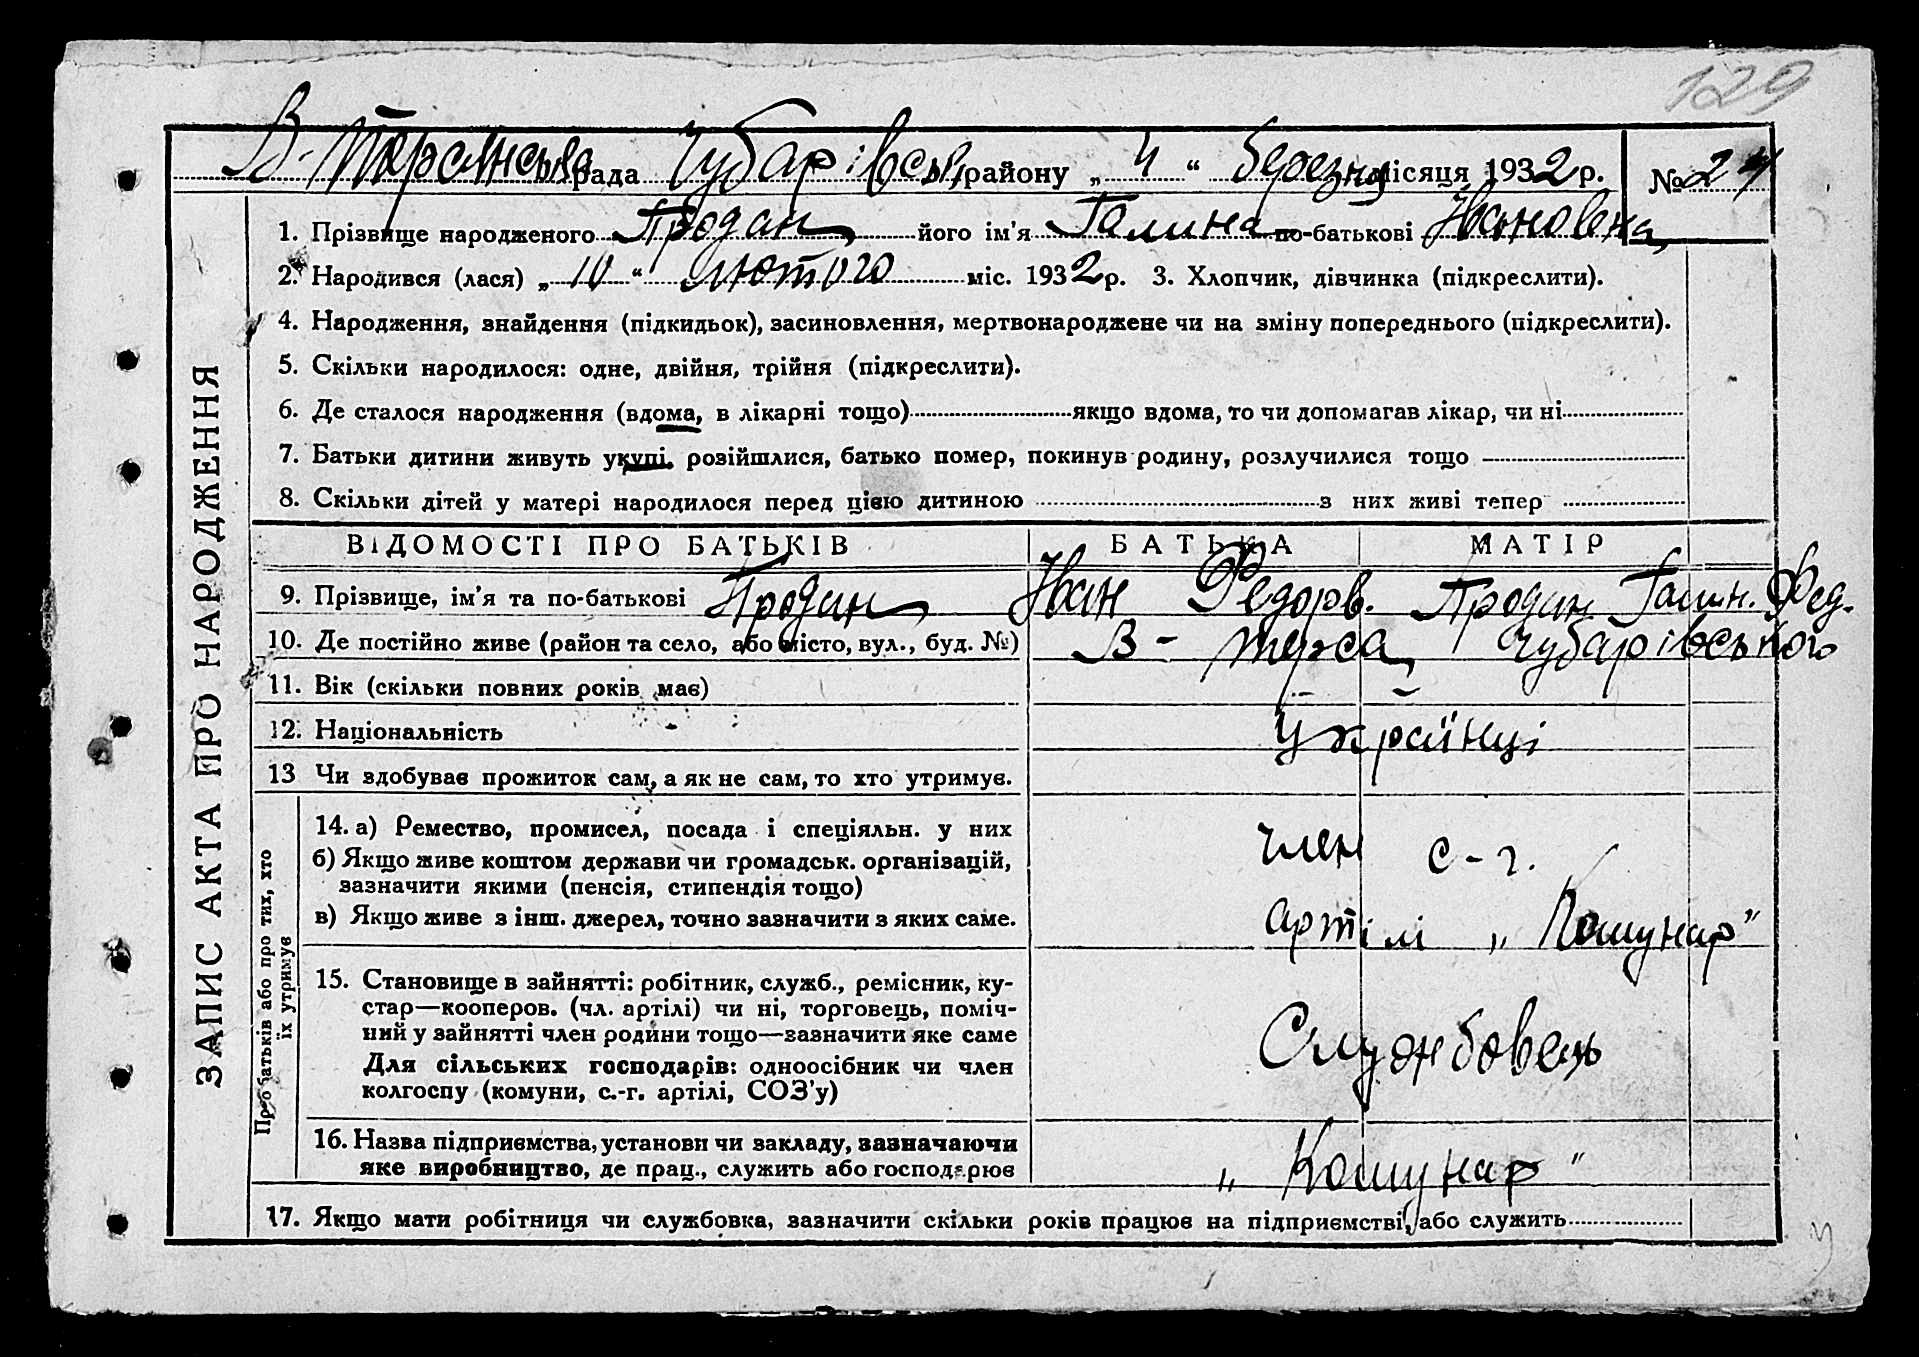 129
В-Терсянська рада Чубарівськ. району „ 4 “ березня місяця 1932 р. № 24
1. Прізвище народженого Продан його ім'я Галина по-батькові Івановна
2. Народився (лася) „ 10 “ лютого міс. 1932 р. 3. Хлопчик, дівчинка (підкреслити).
4. Народження, знайдення (підкидьок), засиновлення, мертвонароджене чи на зміну попереднього (підкреслити).
5. Скільки народилося: одне, двійня, трійня (підкреслити).
6. Де сталося народження (вдома, в лікарні тощо) якщо вдома, то чи допомагав лікар, чи ні
7. Батьки дитини живуть укупі, розійшлися, батько помер, покинув родину, розлучилися тощо
8. Скільки дітей у матері народилося перед цією дитиною з них живі тепер
ВІДОМОСТІ ПРО БАТЬКІВ БАТЬКА МАТІР
9. Прізвище, ім'я та по-батькові Продан Іван Федоров. Продан Галин. Фед.
10. Де постійно живе (район та село, або місто, вул., буд. №) В-Терса Чубарівського
11. Вік (скільки повних років має) – –
12. Національність Українці
13 Чи здобуває прожиток сам, а як не сам, то хто утримує.
14. а) Ремество, промисел, посада і спеціяльн. у них член с-г.
б) Якщо живе коштом держави чи громадськ. організацій,
зазначити якими (пенсія, стипендія тощо)
в) Якщо живе з інш. джерел, точно зазначити з яких саме. артілі „Комунар"
15. Становище в зайнятті: робітник, служб., ремісник, ку-
стар—кооперов. (чл. артілі) чи ні, торговець, поміч-
ний у зайнятті член родини тощо—зазначити яке саме Службовець
Для сільських господарів: одноосібник чи член
колгоспу (комуни, с.-г. артілі, СОЗ'у)
16. Назва підприємства, установи чи закладу, зазначаючи
яке виробництво, де прац., служить або господарює „Комунар"
17. Якщо мати робітниця чи службовка, зазначити скільки років працює на підприємстві, або служить
ЗАПИС АКТА ПРО НАРОДЖЕННЯ
Про батьків або про тих, хто
їх утримує